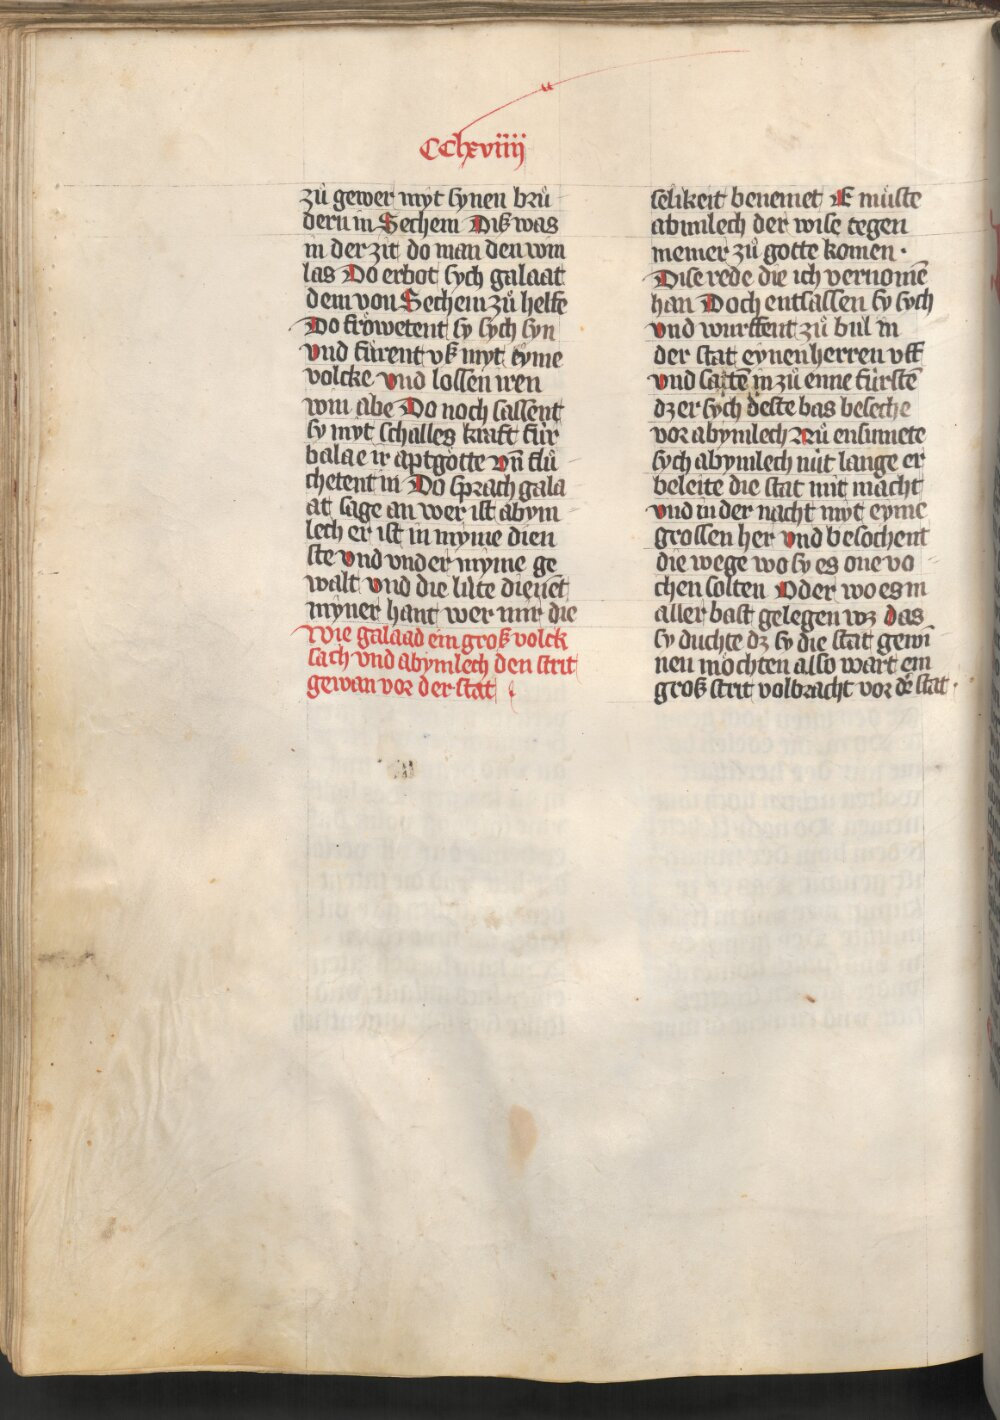 CClxviiij
zuͦ gewer myt synen bruͤ
dern in Sechem Diß was
in der zit do man den win
las Do erbot sych galaat
dem von Sechem zuͦ helfe
Do froͤwetent sy sych syn
vnd fuͤrent vß myt eyme
volcke vnd lossen iren
win abe Do noch sassent
sy myt schalles kraft fuͤr
balae ir aptgoͤtte vn̄ fluͦ
chetent in Do sprach gala
at sage an wer ist abym
lech er ist in myme dien
ste vnd vnder myme ge
walt vnd die luͤte dienet
myner hant wer mir die
Wie galaad ein groß volck
sach vnd abymlech den strit
gewan vor der stat
selikeit benemet E muͤste
abimlech der wise tegen
me mer zuͦ gotte komen ·
Dise rede die ich vernomē
han Doch entsassen sy sych
vnd wurffent zuͦ bul in
der stat eynen herren vff
vnd sattē in zuͦ eime fuͤrstē
dz er sych deste bas beseche
vor abymlech Nuͦ ensumete
sych abymlech nuͤt lange er
beleite die stat mit macht
vnd in der nacht myt eyme
grossen her vnd besochent
die wege wo sy es one vo
chen solten Oder wo es in
aller bast gelegen wz das
sy duchte dz sy die stat gewi
nen moͤchten also wart ein
groß strit volbracht vor d͛ stat ·